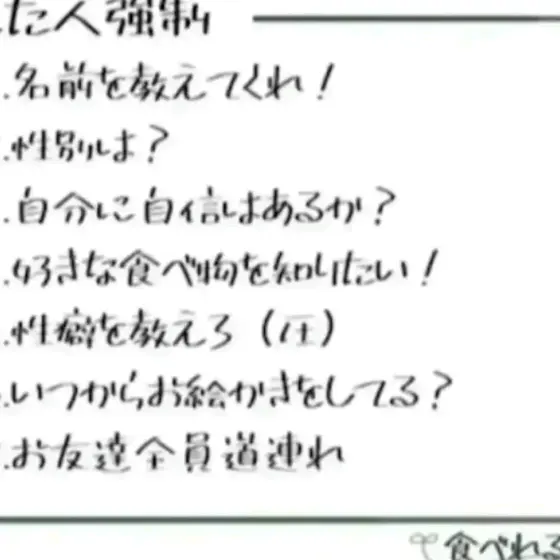 た人強制
.名前を教えてくれ!
.性別は?
.自分に自信はあるか?
.好きな食べ物を知りたい!
.性癖を教えろ(圧)
.いつからお絵かきをしてる?
.お友達全員道連れ
食べれる